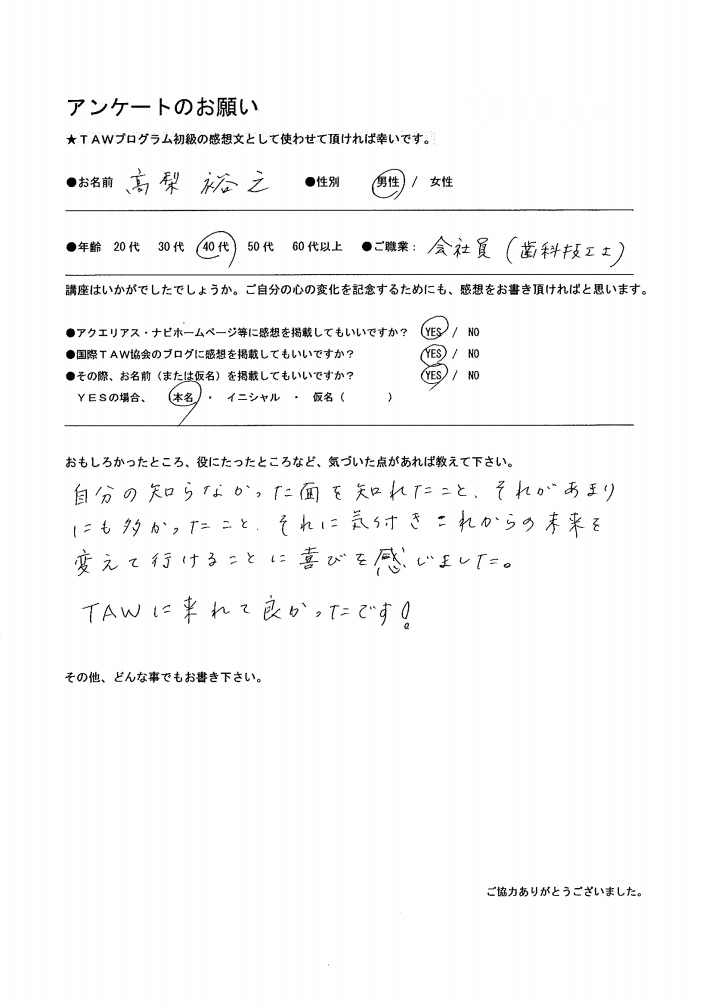 アンケートのお願い
★TAWプログラム初級の感想文として使わせて頂ければ幸いです。
●お名前 高梨 裕之 ●性別 男性 / 女性
●年齢 20代 30代 40代 50代 60代以上 ●ご職業: 会社員(歯科技工士)
講座はいかがでしたでしょうか。ご自分の心の変化を記念するためにも、感想をお書き頂ければと思います。
●アクエリアス・ナビホームページ等に感想を掲載してもいいですか? YES / NO
●国際TAW協会のブログに感想を掲載してもいいですか? YES / NO
●その際、お名前(または仮名)を掲載してもいいですか? YES / NO
YESの場合、 本名 ・ イニシャル ・ 仮名( )
おもしろかったところ、役にたったところなど、気づいた点があれば教えて下さい。
自分の知らなかった面を知れたこと、それがあまり
にも多かったこと、それに気付きこれからの未来を
変えて行けることに喜びを感じました。
TAWに来れて良かったです!
その他、どんな事でもお書き下さい。
ご協力ありがとうございました。